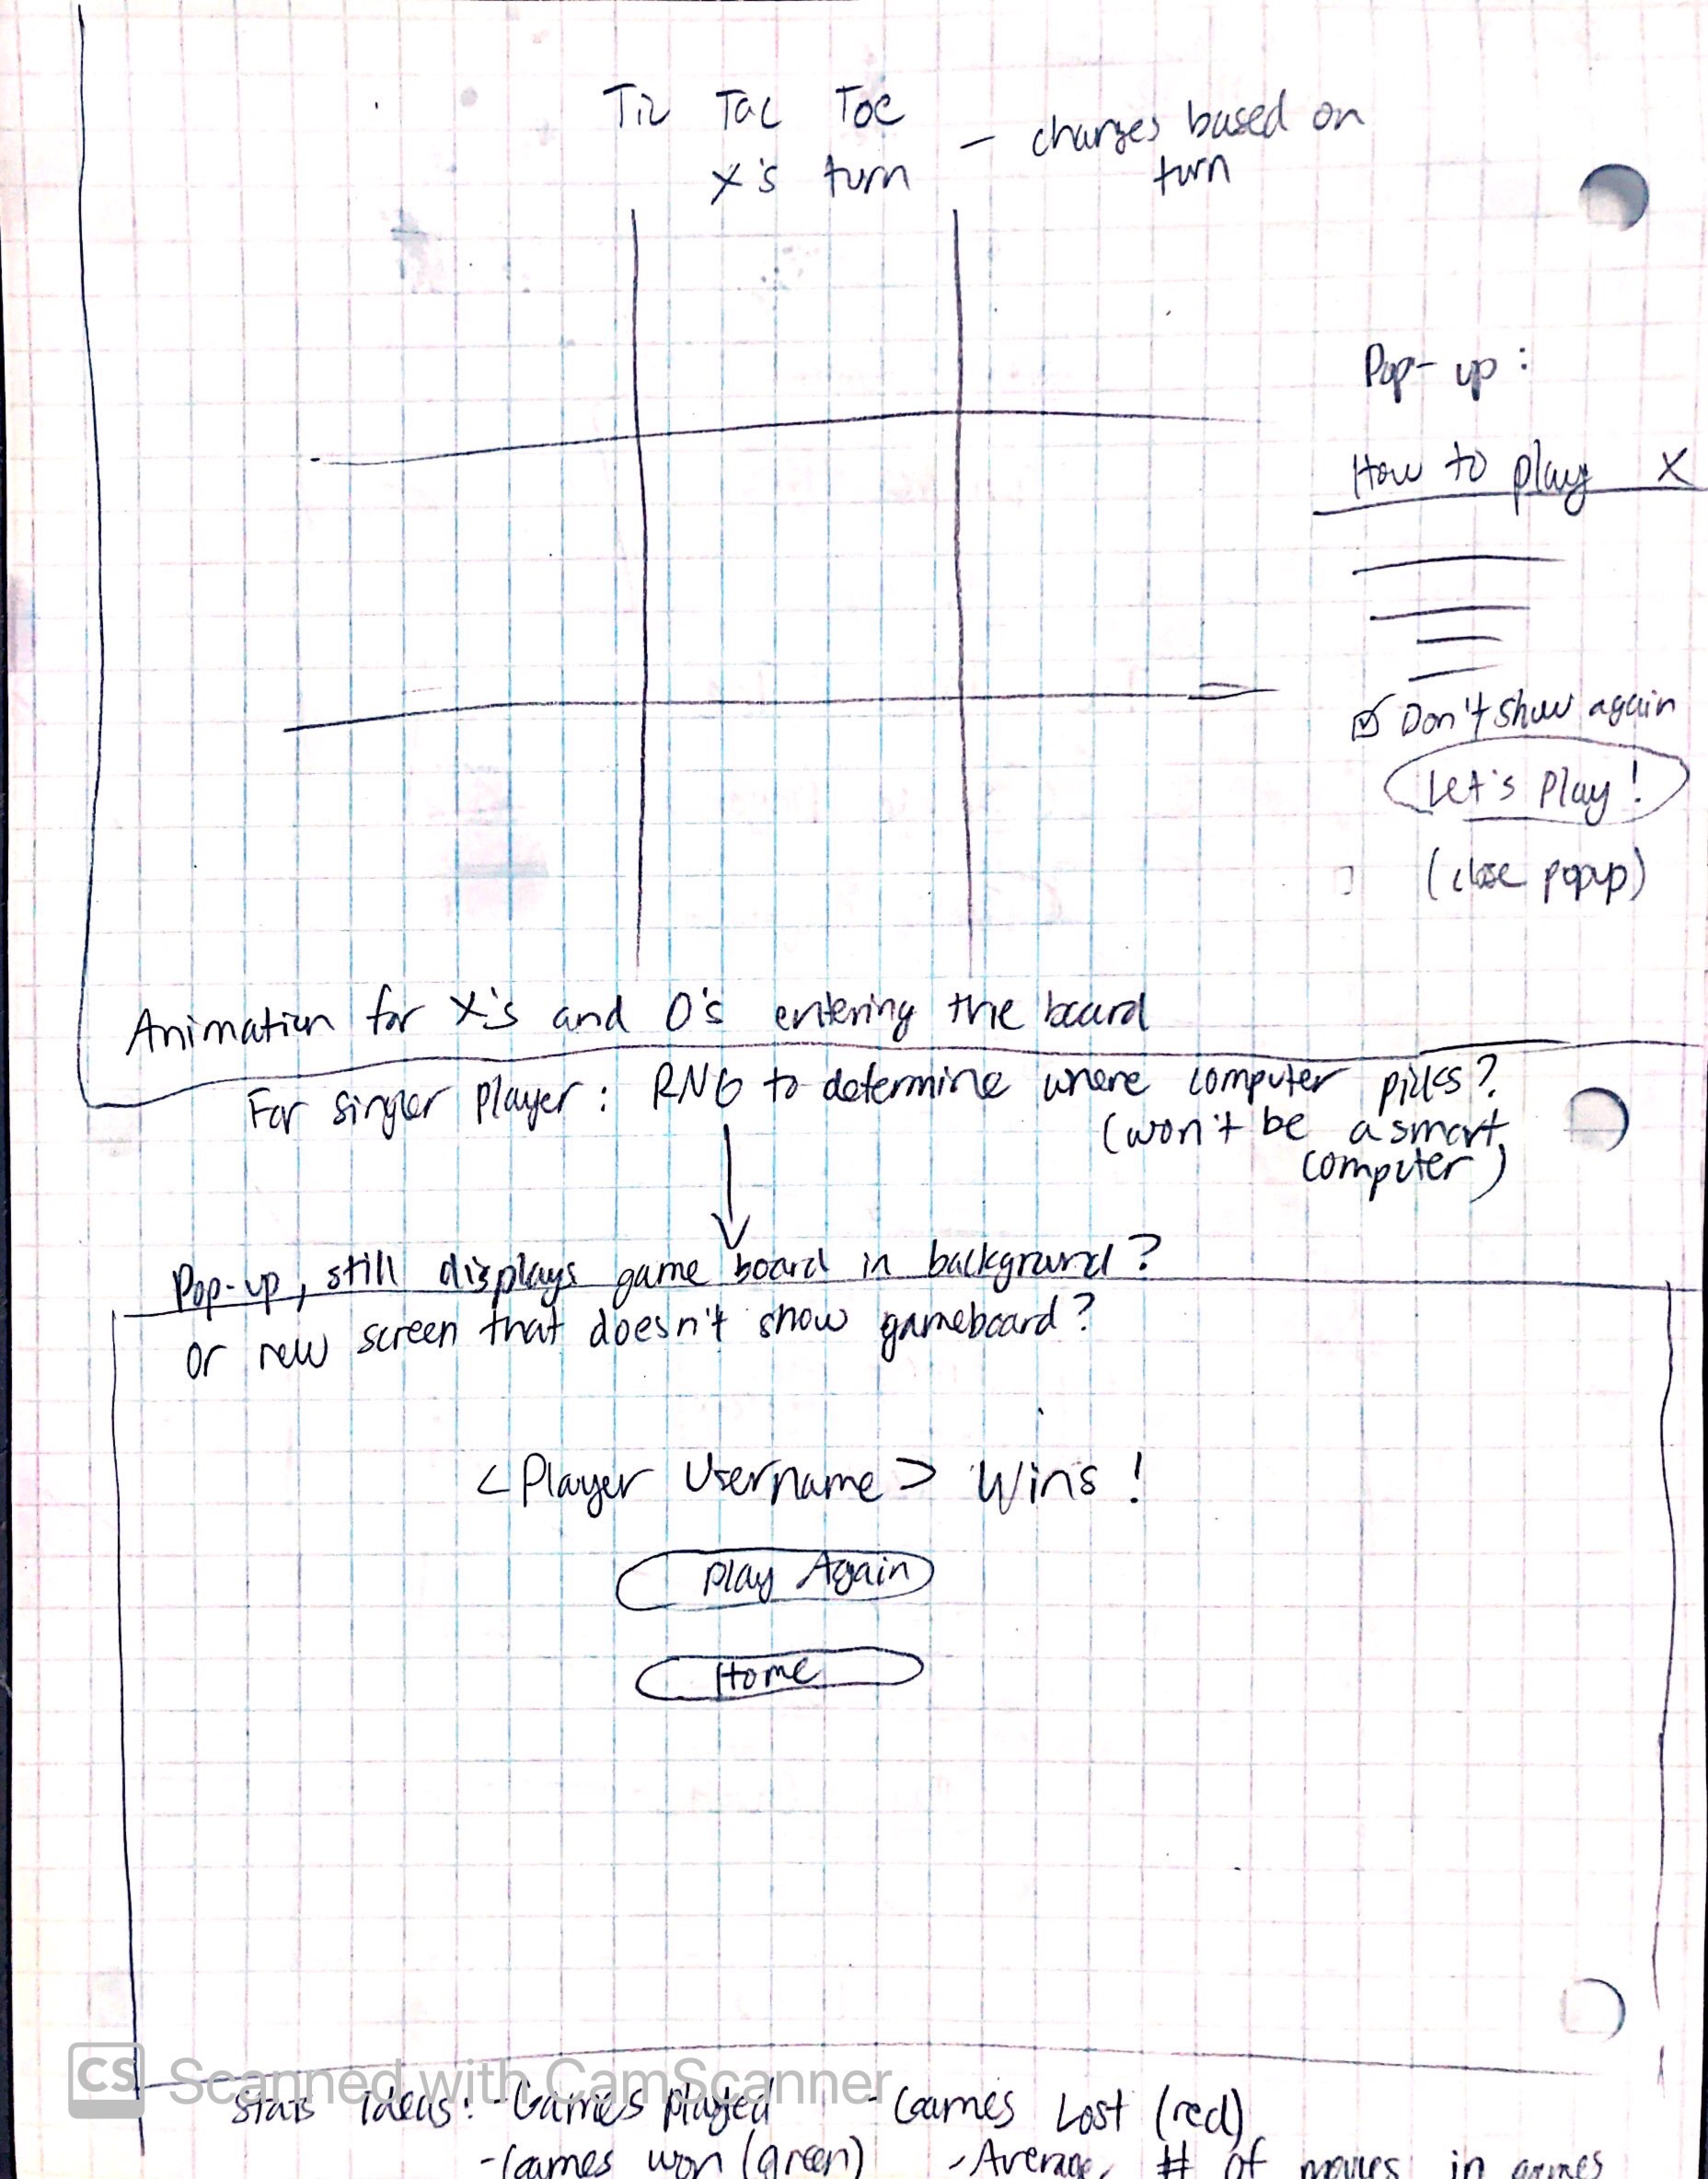 Tic Tac Toe
X's turn - changes based on
turn
Pop-up :
How to play X
☑ Don't show again
Let's Play!
(close popup)
Animation for X's and O's entering the board
For singler player : RNG to determine where computer picks?
(won't be a smart
computer)
Pop-up, still displays game board in background?
or new screen that doesn't show gameboard?
<Player Username> Wins!
Play Again
Home
CS Scanned with CamScanner
Stats ideas: - Games played - Games Lost (red)
- Games won (green) - Average # of moves in games